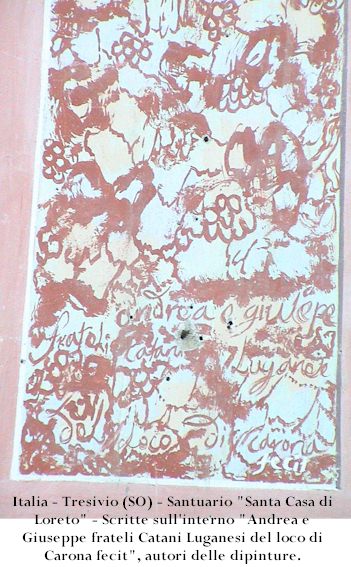 andrea e giusepe
frateli Catani Luganese
del loco di carona
fecit
Italia - Tresivio (SO) - Santuario "Santa Casa di
Loreto" - Scritte sull'interno "Andrea e
Giuseppe frateli Catani Luganesi del loco di
Carona fecit", autori delle dipinture.